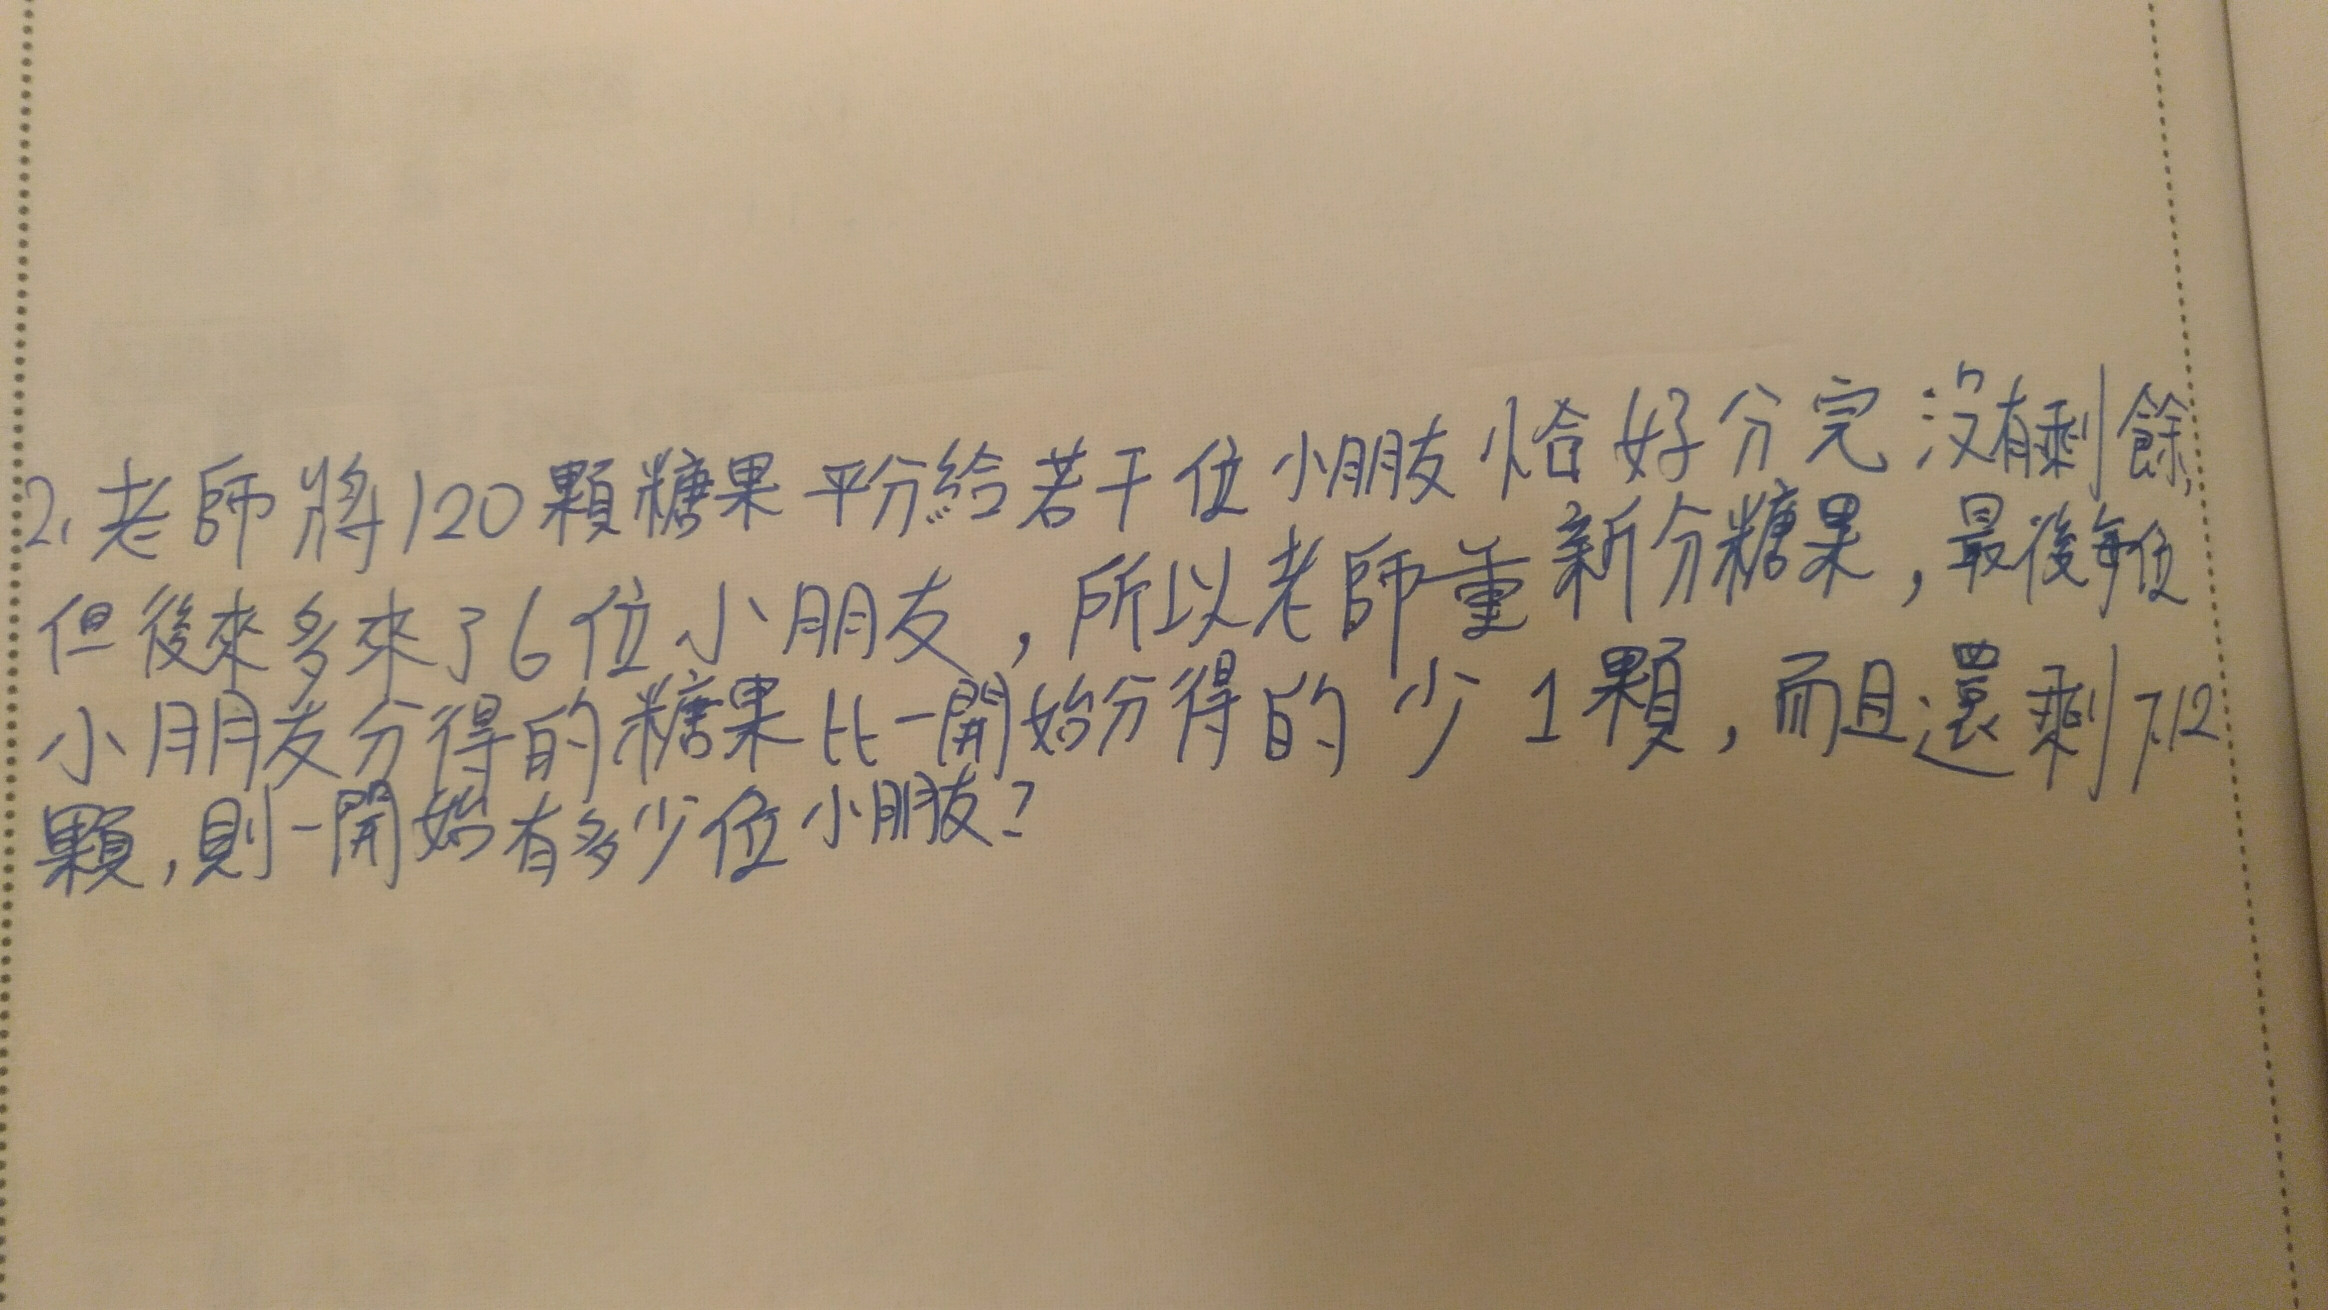 2. 老師將120顆糖果平分給若干位小朋友恰好分完沒有剩餘,
但後來多來了6位小朋友,所以老師重新分糖果,最後每位
小朋友分得的糖果比一開始分得的少1顆,而且還剩下12
顆,則一開始有多少位小朋友?